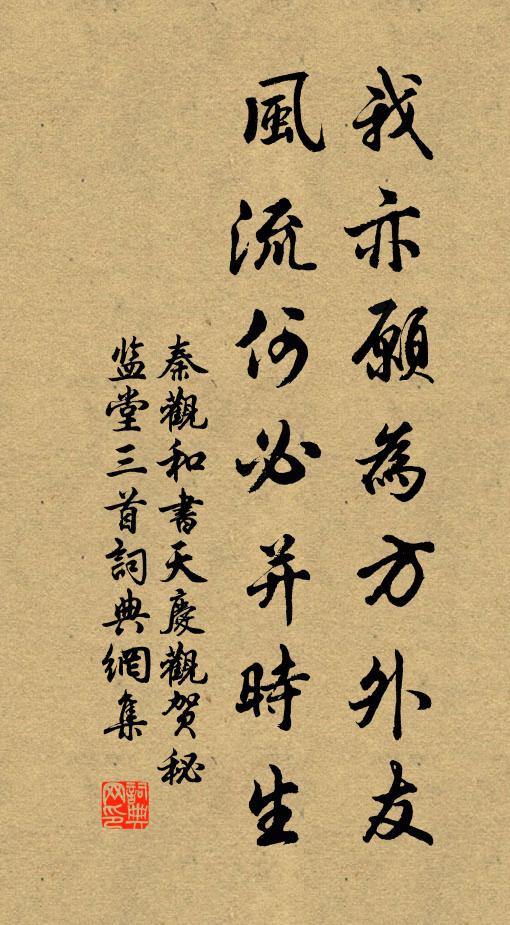 我亦願為方外友
風流何必并時生
秦觀和書天慶觀賀秘
监堂三首詞典網集
詞典网印